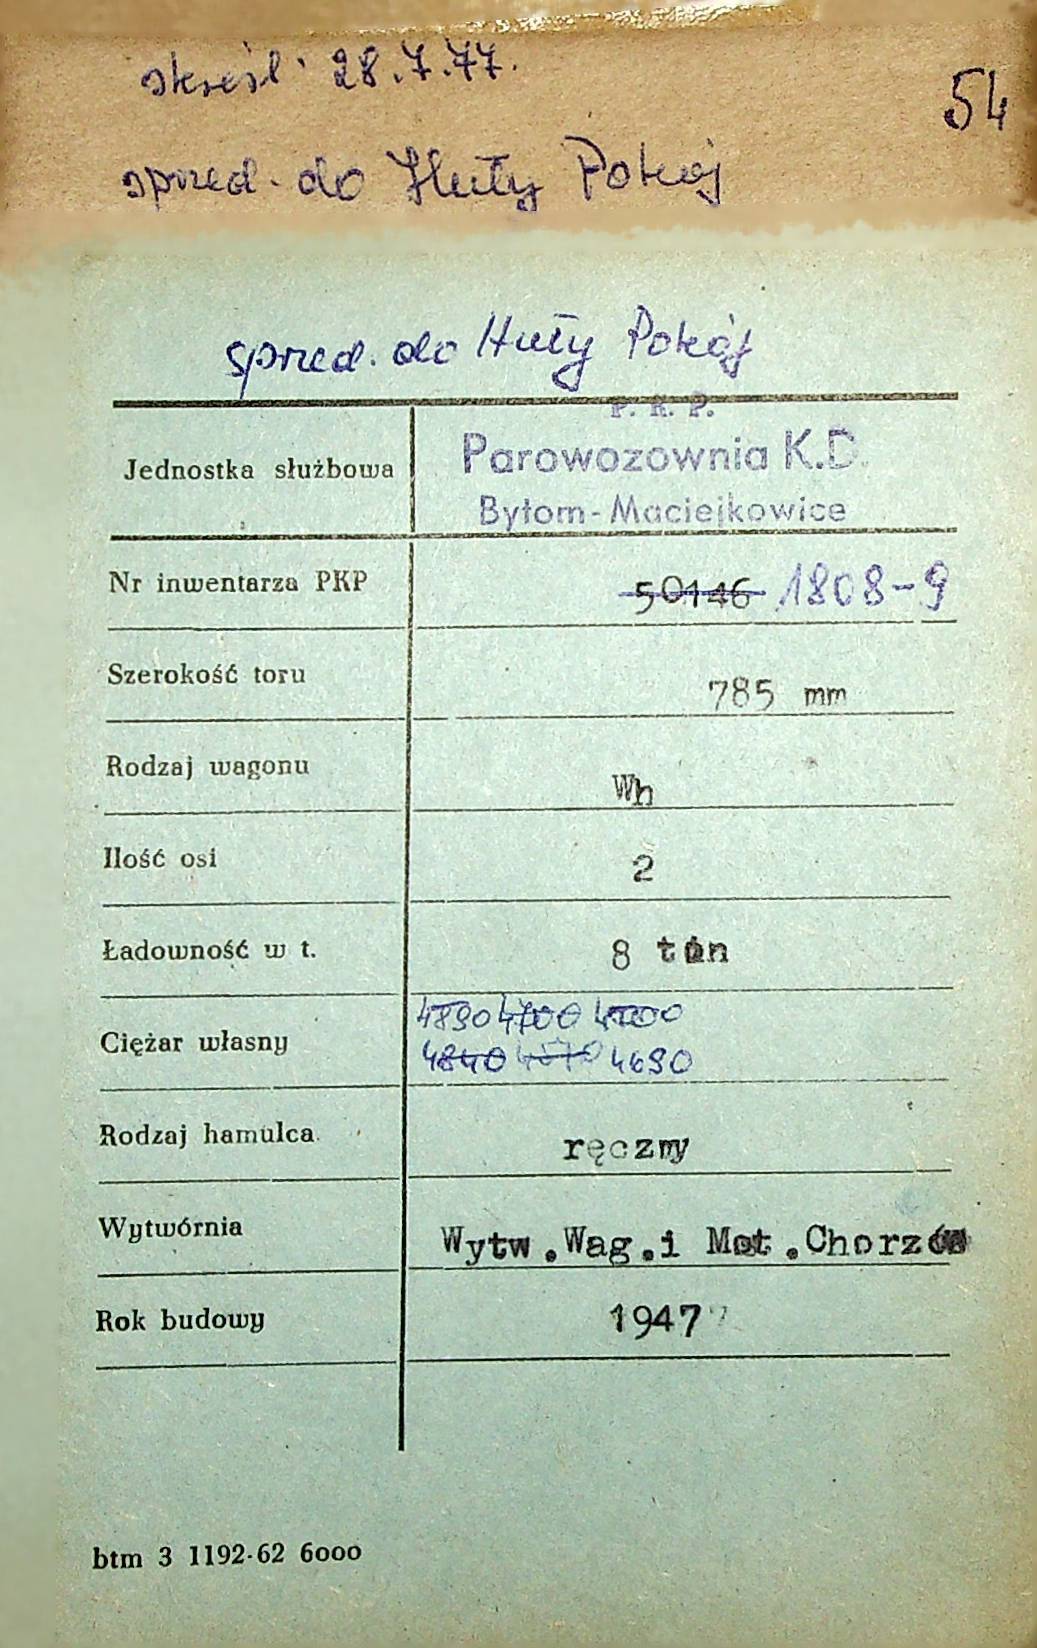 skreśl. 28.7.77.
54
sprzed. do Huty Pokój
sprzed. do Huty Pokój
P. K. P.
Jednostka służbowa Parowozownia K.D.
Bytom-Maciejkowice
Nr inwentarza PKP 50146 1808-9
Szerokość toru 785 mm
Rodzaj wagonu Wh
Ilość osi 2
Ładowność w t. 8 ton
4890 4700
Ciężar własny 4840 4690
Rodzaj hamulca ręczny
Wytwórnia Wytw.Wag.i Mot.Chorzów
Rok budowy 1947
btm 3 1192-62 6000